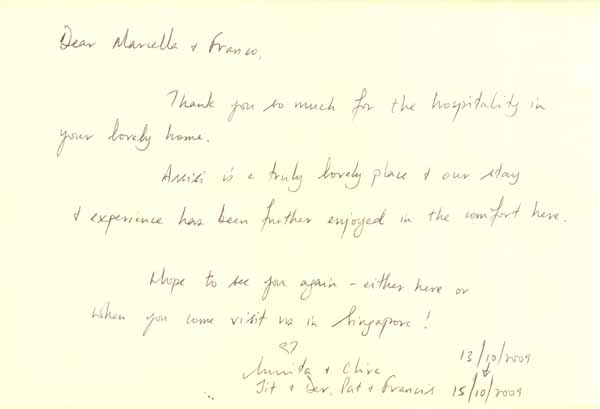 Dear Marcella + Franco,
Thank you so much for the hospitality in
your lovely home.
Assisi is a truly lovely place + our stay
+ experience has been further enjoyed in the comfort here.
Hope to see you again - either here or
when you come visit us in Singapore!
+ Clive 13/10/2009
Jit + Dev, Pat + Francis 15/10/2009